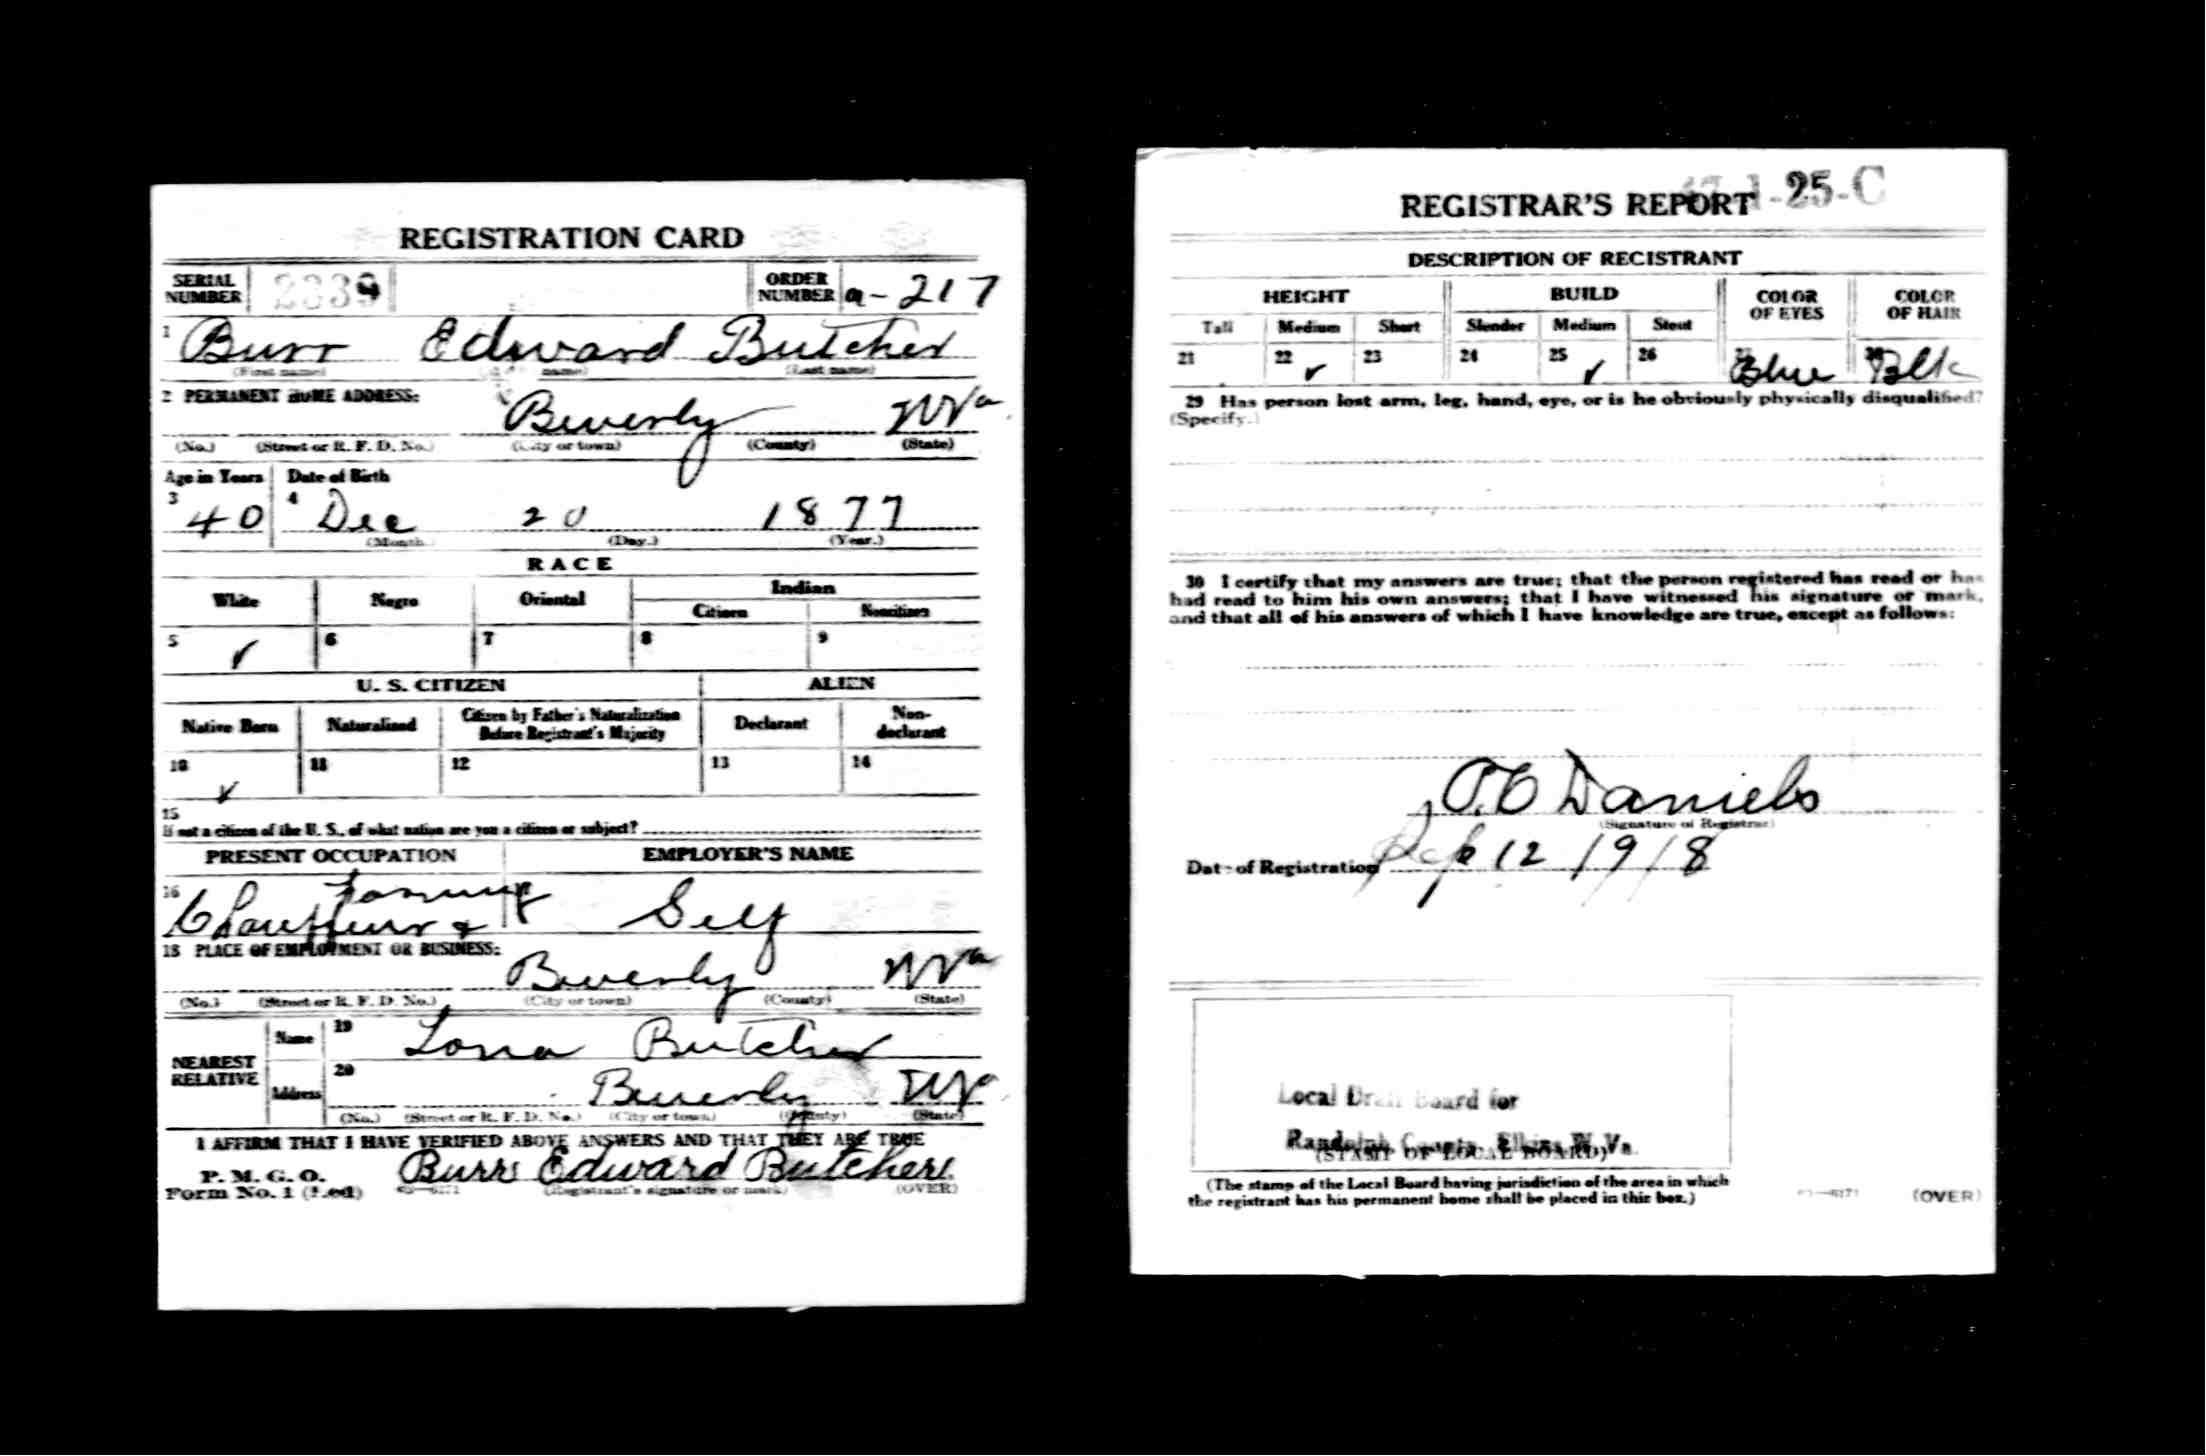 REGISTRATION CARD
SERIAL NUMBER 2339 ORDER NUMBER a-217
1 Burr Edward Butcher
(First name) name) (Last name)
2 PERMANENT HOME ADDRESS: Beverly W Va
(No.) (Street or R. F. D. No.) (City or town) (County) (State)
Age in Years Date of Birth
3 40 4 Dec 20 1877
(Month.) (Day.) (Year.)
RACE
White Negro Oriental Indian
Citizen Noncitizen
5 ✓ 6 7 8 9
U. S. CITIZEN ALIEN
Native Born Naturalized Citizen by Father's Naturalization Before Registrant's Majority Declarant Non-declarant
10 ✓ 11 12 13 14
15
If not a citizen of the U. S., of what nation are you a citizen or subject?
PRESENT OCCUPATION EMPLOYER'S NAME
16 Chauffeur & Farming Self
18 PLACE OF EMPLOYMENT OR BUSINESS:
Beverly W Va
(No.) (Street or R. F. D. No.) (City or town) (County) (State)
NEAREST RELATIVE Name 19 Lona Butcher
Address 20 Beverly W Va
(No.) (Street or R. F. D. No.) (City or town) (County) (State)
I AFFIRM THAT I HAVE VERIFIED ABOVE ANSWERS AND THAT THEY ARE TRUE
P. M. G. O.
Form No. 1 (Red) Burr Edward Butcher
(Registrant's signature or mark) (OVER)
REGISTRAR'S REPORT 1-25-C
DESCRIPTION OF REGISTRANT
HEIGHT BUILD COLOR OF EYES COLOR OF HAIR
Tall Medium Short Slender Medium Stout
21 22 ✓ 23 24 25 ✓ 26 27 Blue 28 Blk
29 Has person lost arm, leg, hand, eye, or is he obviously physically disqualified?
(Specify.)
30 I certify that my answers are true; that the person registered has read or has
had read to him his own answers; that I have witnessed his signature or mark,
and that all of his answers of which I have knowledge are true, except as follows:
Daniels
(Signature of Registrar)
Date of Registration Sep 12 1918
Local Draft Board for
Randolph County, Elkins, W. Va.
(STAMP OF LOCAL BOARD)
(The stamp of the Local Board having jurisdiction of the area in which
the registrant has his permanent home shall be placed in this box.)
(OVER)